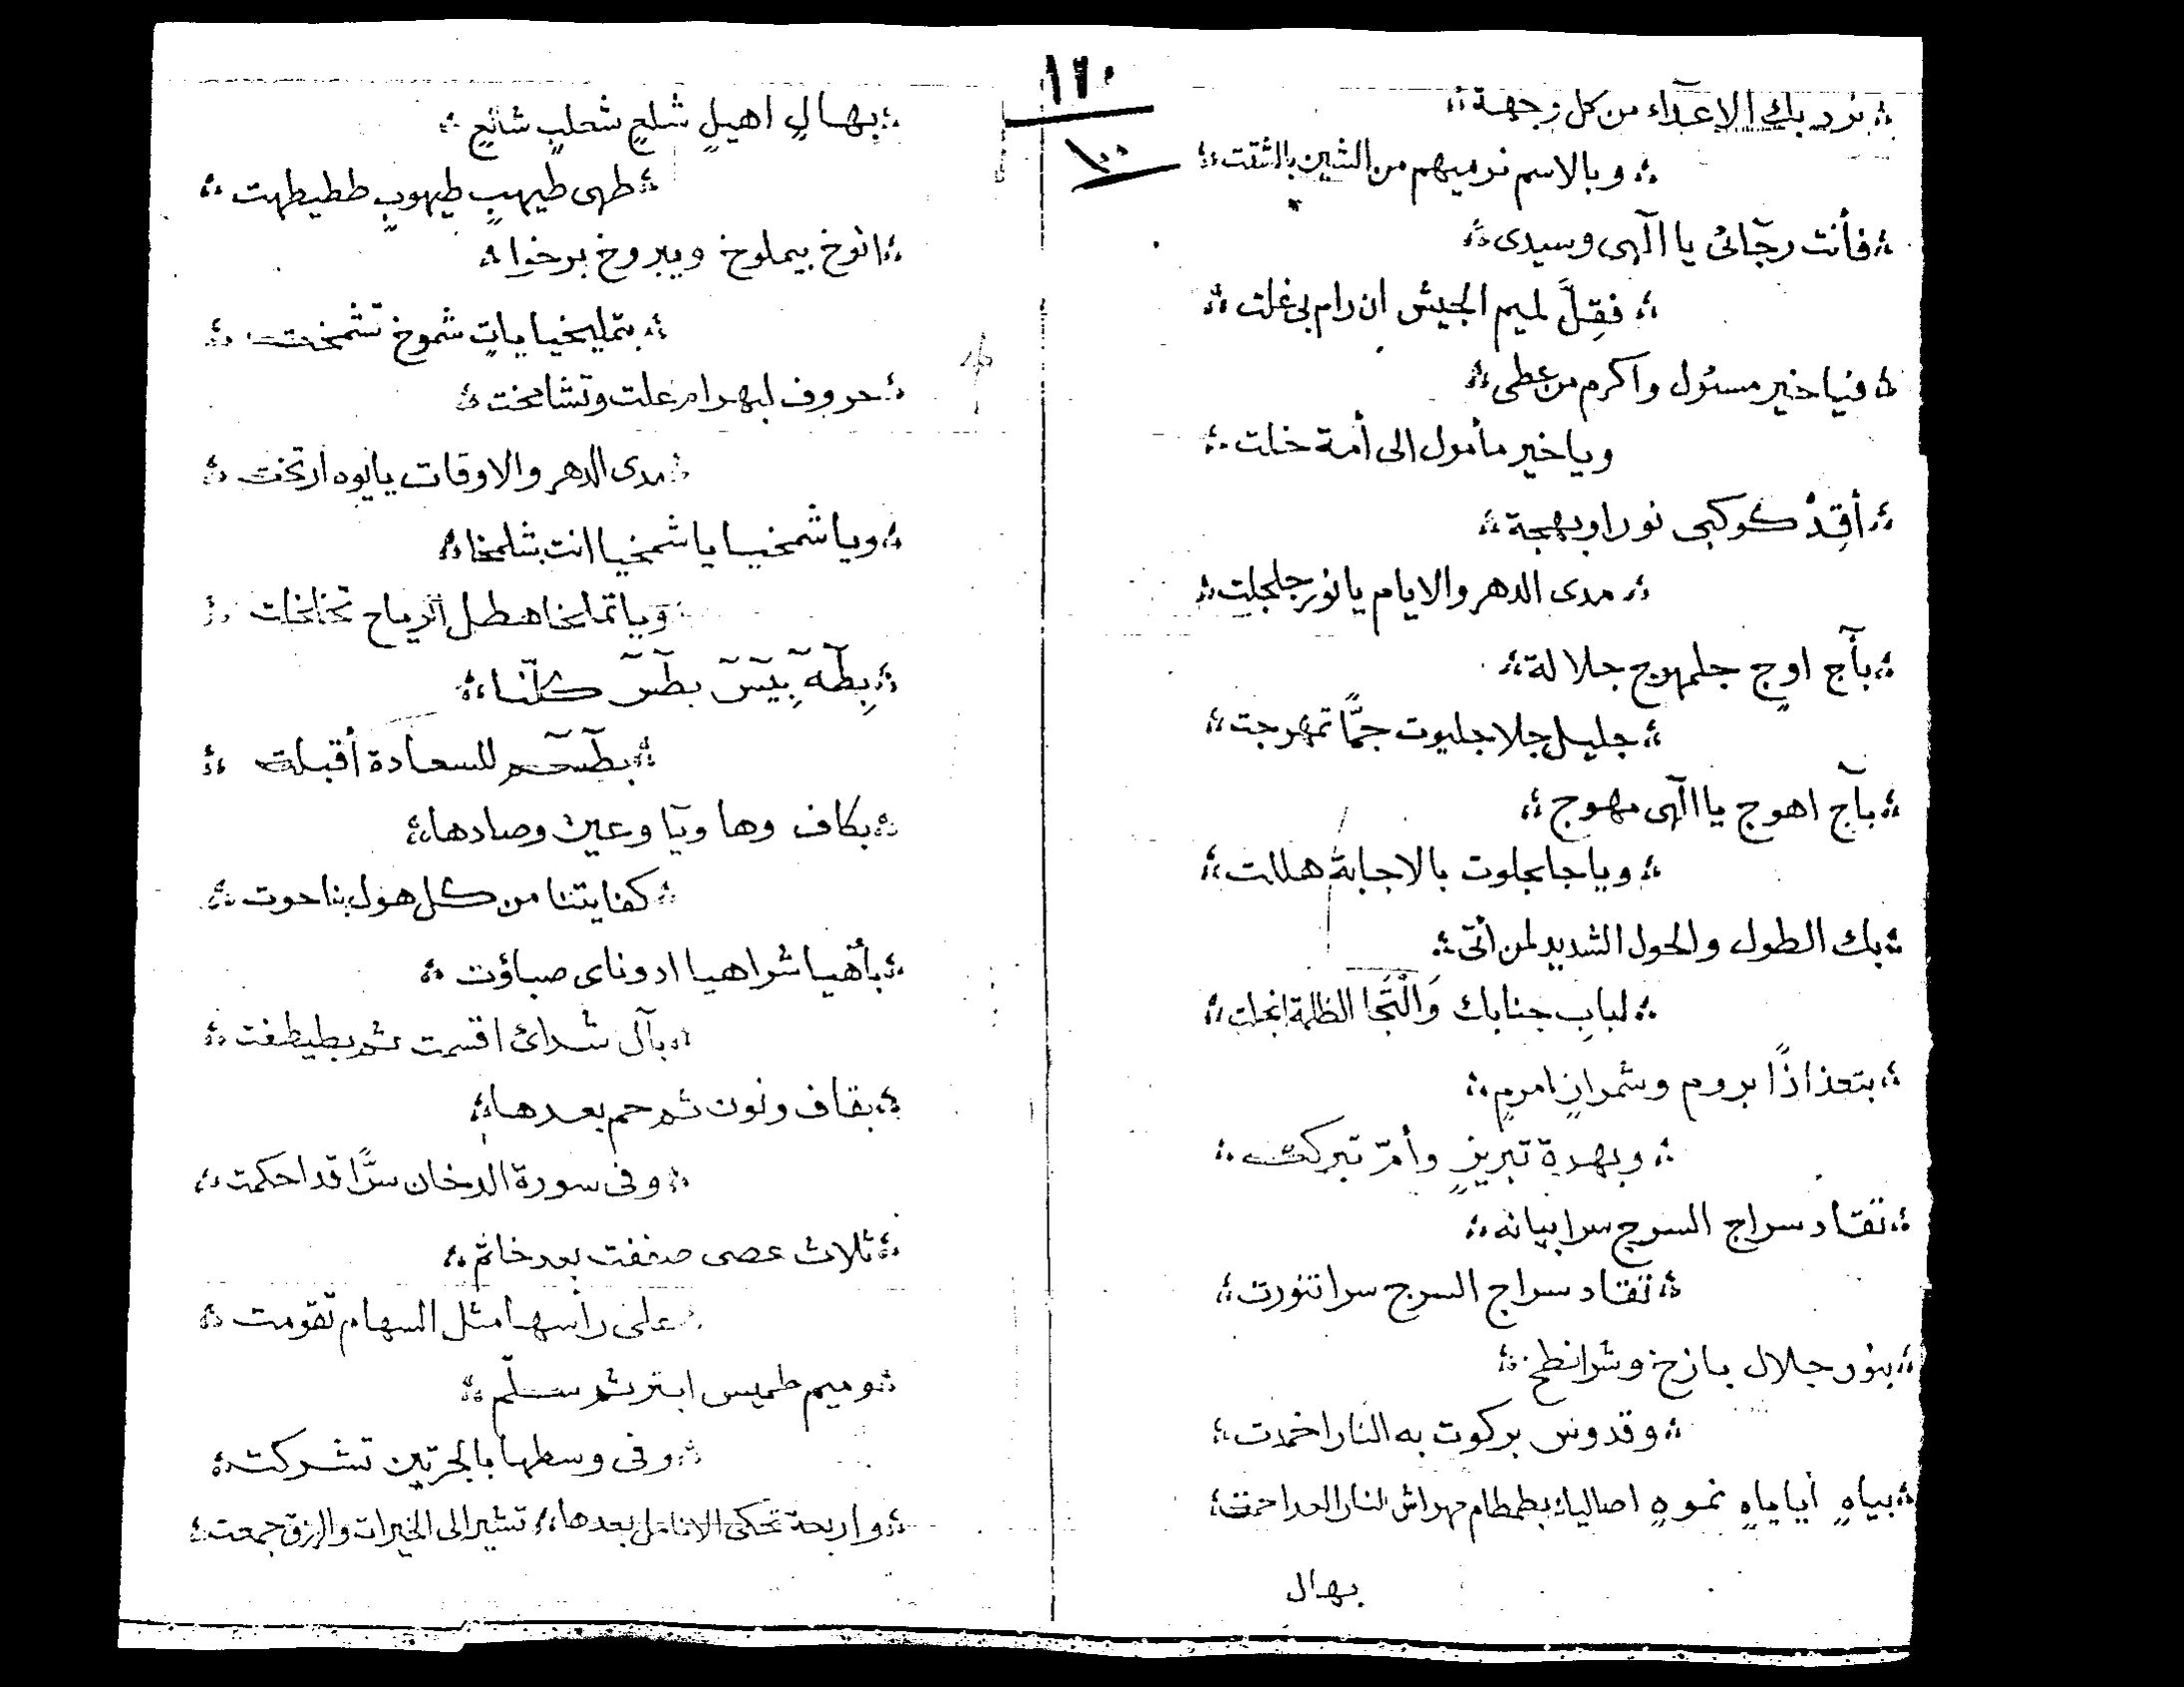 نرد بك الاعداء من كل وجهة
وبالاسم نرميهم من الشين بالشتت
فأنت رجائى يا الهى وسيدى
ففلّ لميم الجيش ان رام بى غلت
فيا خير مسئول واكرم من عطى
ويا خير مأمول الى أمة خلت
أقِدْ كوكبى نورا وبهجة
مدى الدهر والايام يا نور جلجلت
بآج اوج جلمهوج جلالة
جليل جلاجليوت جمًّا تمهرجت
بآج اهوج يا الهى مهوج
ويا جلجلوت بالاجابة هللت
بك الطول والحول الشديد لمن أتى
لبابِ جنابك وَالْتَجَا الظلمة انجلت
بتعذاذًا بروم وشمرانٍ امرمٍ
وبهرة تبريزٍ وأمّ تبركت
تقاد سراج السرج سرا بيانه
تقاد سراج السرج سرا تنورت
بنور جلال بازخ وشرانطخ
وقدوس بركوت به النار اخمدت
بياهٍ أياياهٍ نموهٍ اصاليا بطمطام مهراش لنار العدا خمدت
بهال
١٢٠
١٠٠
بهالٍ اهيلٍ شلعٍ شعلبٍ شائعٍ
طهى طيهبٍ طيهوبٍ ططيطهت
انوخ بيملوخ ويبروخ برخوا
بتمليخيا ياتٍ شموخ تشمخت
حروف لبهرام علت وتشامخت
مدى الدهر والاوقات يا يوه ارتخت
ويا شمخيا يا شمخيا انت شلمخا
ويا تملخا هطل الرياح تخلخلت
بِطَه بِيَس بطس كلّنا
بطسحم للسعادة أقبلت
بكاف وها ويا وعين وصادها
كفايتنا من كل هول بنا حوت
بأهيا شراهيا ادوناى صباؤت
بآل شداى اقسمت ثم بطيطغت
بقاف ونون ثم حم بعدها
وفى سورة الدخان سرًّا قد احكمت
ثلاث عصى صففت بعد خاتم
على رأسها مثل السهام تقومت
وميم طميس ابتر ثم سلّم
وفى وسطها بالجرتين تشركت
واربعة تحكى الانامل بعدها تشير الى الخيرات والرزق جمعت